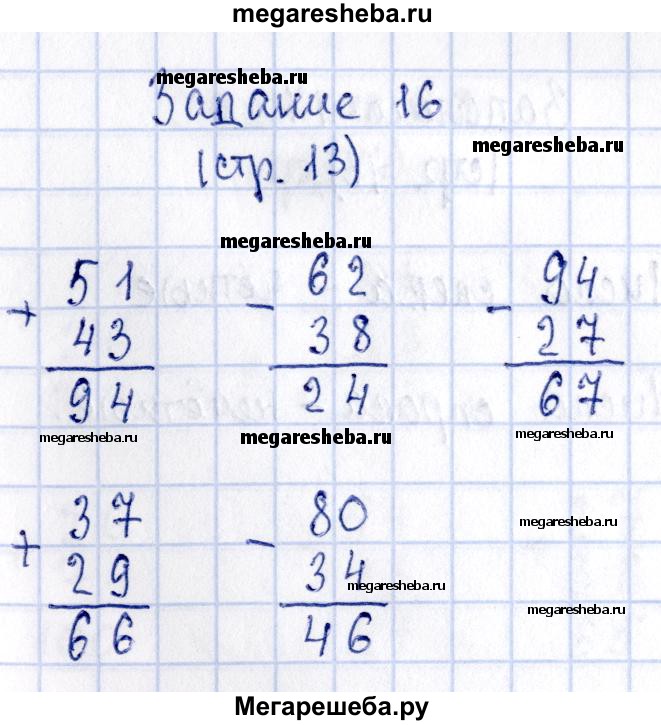 megaresheba.ru
megaresheba.ru
Задание 16
megaresheba.ru
(стр. 13)
megaresheba.ru
51 62 94
+ - -
43 38 27
94 24 67
megaresheba.ru megaresheba.ru megaresheba.ru
37 80 megaresheba.ru
+ -
29 34 megaresheba.ru
megaresheba.ru
66 46
Мегарешеба.ру